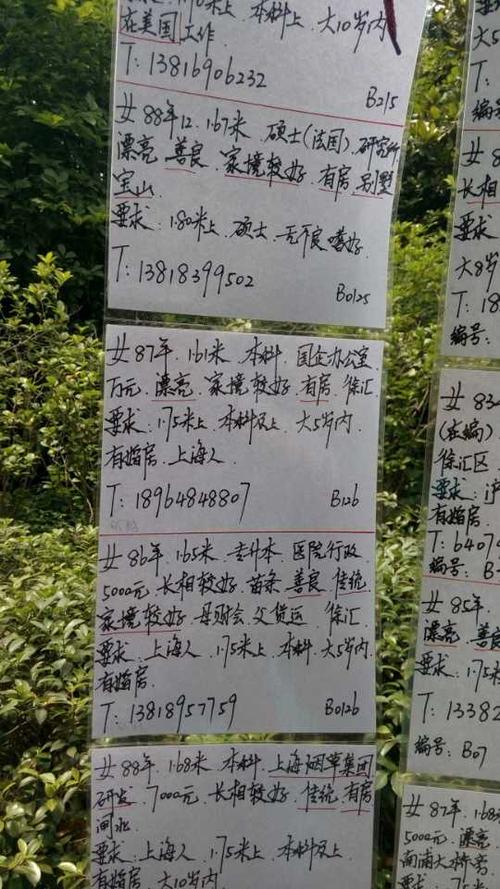 米上 本科上 大10岁内
在美国工作
T: 13816906232
B215
女88年12. 1.67米. 硕士(法国). 研究所
漂亮 善良. 家境较好. 有房. 别墅
宝山
要求: 1.80米上. 硕士. 无不良嗜好.
T: 13818399502
B0125
女87年. 1.61米. 本科. 国企办公室
万元. 漂亮. 家境较好. 有房. 徐汇
要求: 1.75米上. 本科及上. 大5岁内
有婚房. 上海人.
T: 18964848807
B126
女86年. 1.65米. 专升本. 医院行政
5000元. 长相较好. 苗条. 善良. 传统.
家境较好. 母财会. 父货运. 徐汇
要求: 上海人. 1.75米上. 本科. 大5岁内
有婚房.
T: 13818957759
B0126
女88年. 1.68米. 本科. 上海烟草集团
研发. 7000元. 长相较好. 传统. 有房
闸北
要求: 上海人. 1.75米上. 本科及上
有婚房. 大10岁内
大5
编号
女8
长相
要求
大8岁
T: 18
编号:
女83
(在编)
徐汇区
要求: 沪
有婚房
T: 6407
编号: B
女85年.
漂亮 善良
要求: 1.75米
T: 13382
编号: B07
女87年. 1.68
5000元. 漂亮
南浦大桥旁
要求